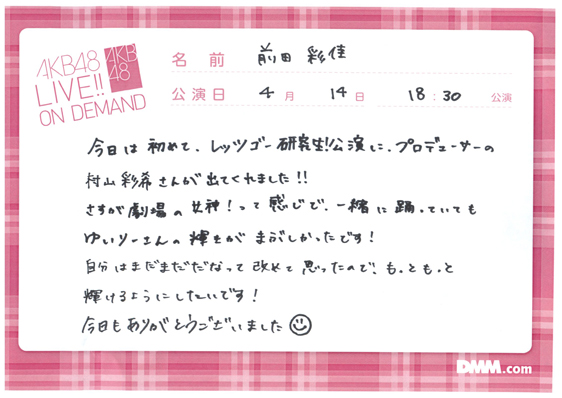 AKB48
LIVE!!
ON DEMAND
AKB
48
名前 前田 彩佳
公演日 4月 14日 18:30 公演
今日は初めて、レッツゴー研究生!公演に、プロデューサーの
村山彩希さんが出てくれました!!
さすが劇場の女神!って感じで、一緒に踊っていても
ゆいりーさんの輝きがまぶしかったです!
自分はまだまだだなって改めて思ったので、もっともっと
輝けるようにしたいです!
今日もありがとうございました
DMM.com